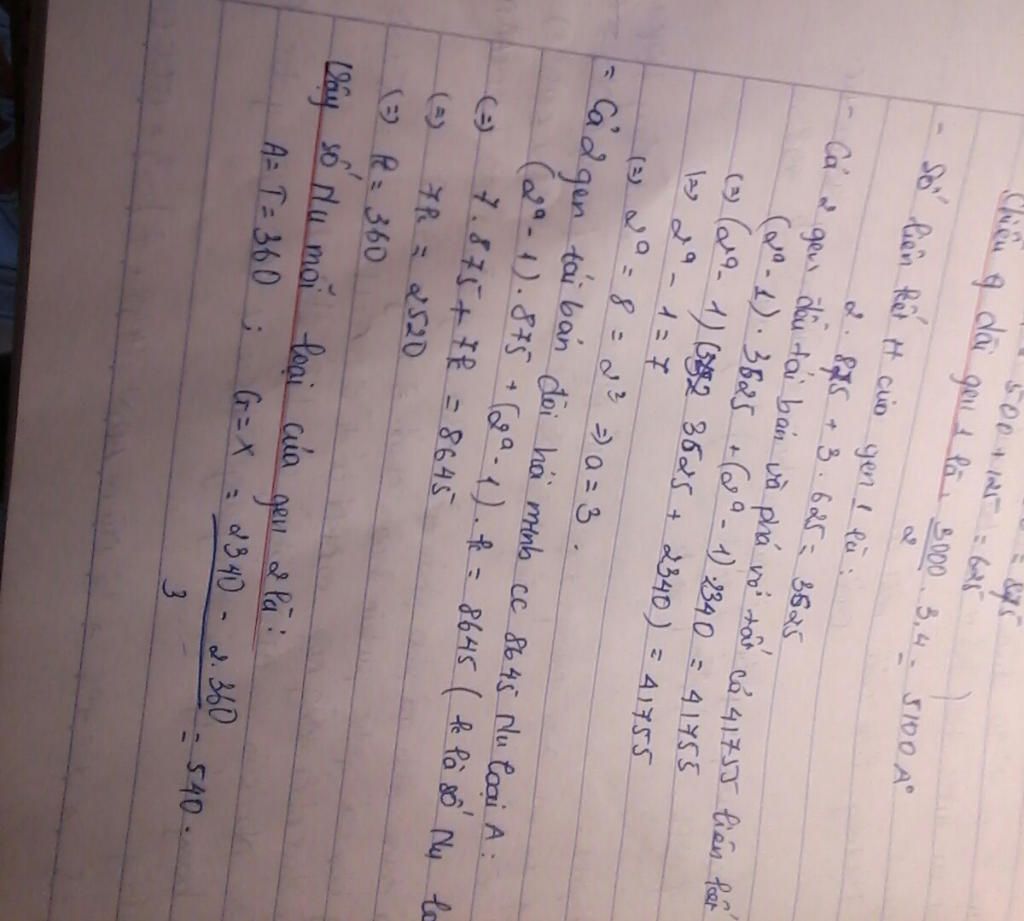 = 875
500 + 125 = 625
Chiều dài gen 1 là: 3000/2 . 3,4 = 5100 A°
- Số liên kết H của gen 1 là:
2 . 875 + 3 . 625 = 3625
- Cả 2 gen đều tái bản và phá vỡ tất cả 41755 liên kết
(2ᵃ - 1) . 3625 + (2ᵃ - 1) . 2340 = 41755
(=) (2ᵃ - 1) ( 3625 + 2340) = 41755
(=) 2ᵃ - 1 = 7
(=) 2ᵃ = 8 = 2³ => a = 3 .
= Cả 2 gen tái bản đòi hỏi mtnb cc 8645 Nu loại A :
(2ᵃ - 1) . 875 + (2ᵃ - 1) . k = 8645 ( k là số Nu
(=) 7 . 875 + 7k = 8645
(=) 7k = 2520
(=) k = 360
Vậy số Nu mỗi loại của gen 2 là :
A = T = 360 ; G = X = 2340 - 2.360 / 3 = 540 .